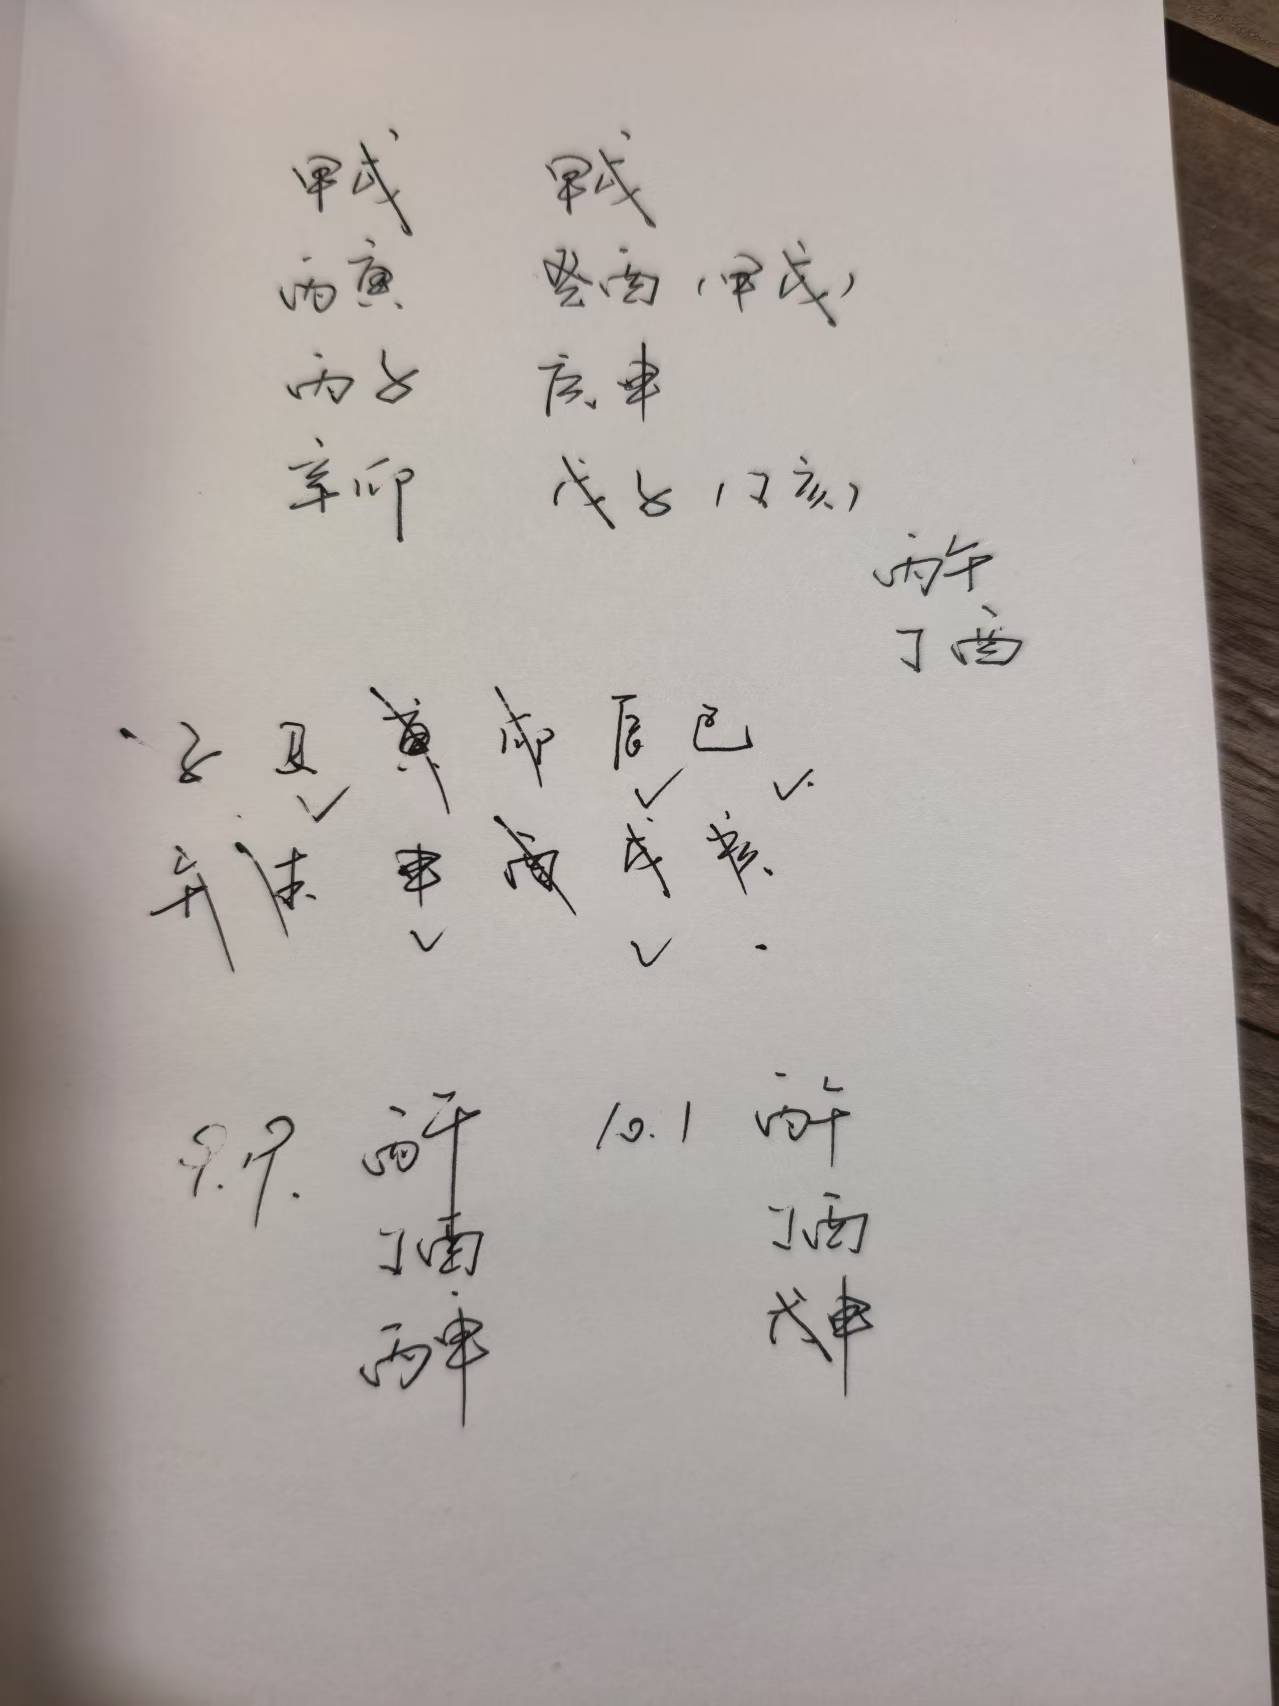 甲戌 甲戌
丙寅 癸酉（甲戌）
丙子 庚申
辛卯 戊子（丁亥）
丙午
丁酉
子 丑 寅 卯 辰 巳
午 未 申 酉 戌 亥
9.19. 丙午 10.1 丙午
丁酉 丁酉
丙申 戊申